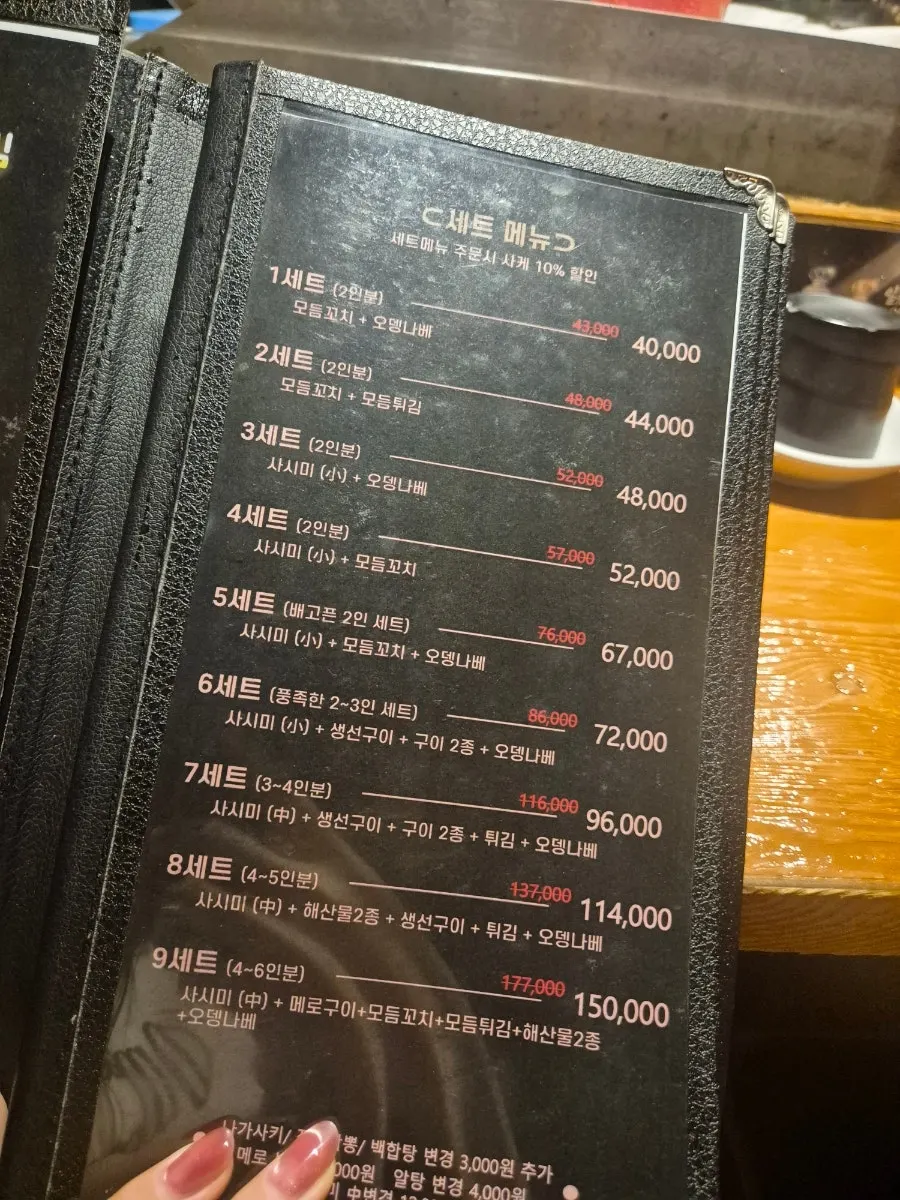 세트 메뉴
세트메뉴 주문시 사케 10% 할인
1세트 (2인분) 43,000 40,000
모듬꼬치 + 오뎅나베
2세트 (2인분) 48,000 44,000
모듬꼬치 + 모듬튀김
3세트 (2인분) 52,000 48,000
사시미 (小) + 오뎅나베
4세트 (2인분) 57,000 52,000
사시미 (小) + 모듬꼬치
5세트 (배고픈 2인 세트) 76,000 67,000
사시미 (小) + 모듬꼬치 + 오뎅나베
6세트 (풍족한 2~3인 세트) 86,000 72,000
사시미 (小) + 생선구이 + 구이 2종 + 오뎅나베
7세트 (3~4인분) 116,000 96,000
사시미 (中) + 생선구이 + 구이 2종 + 튀김 + 오뎅나베
8세트 (4~5인분) 137,000 114,000
사시미 (中) + 해산물2종 + 생선구이 + 튀김 + 오뎅나베
9세트 (4~6인분) 177,000 150,000
사시미 (中) + 메로구이+모듬꼬치+모듬튀김+해산물2종
+오뎅나베
나가사키/ 백합탕 변경 3,000원 추가
메로 알탕 변경 4,000원
中변경